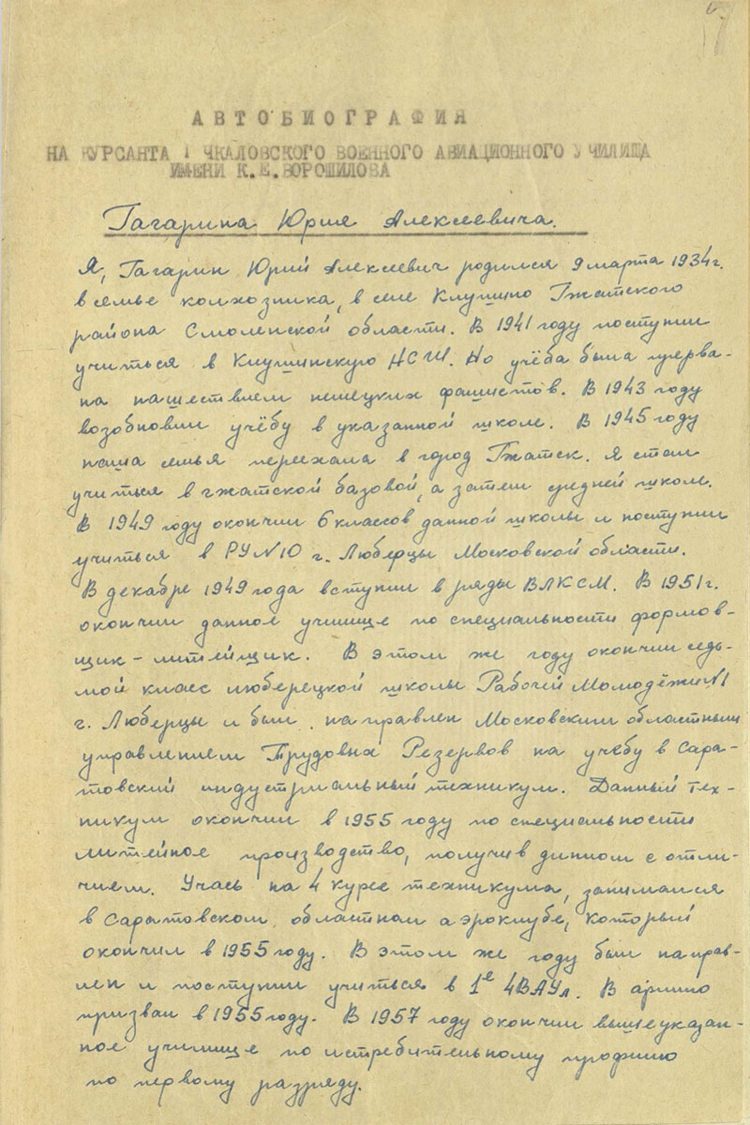 АВТОБИОГРАФИЯ
НА КУРСАНТА 1 ЧКАЛОВСКОГО ВОЕННОГО АВИАЦИОННОГО УЧИЛИЩА
ИМЕНИ К.Е.ВОРОШИЛОВА
Гагарина Юрия Алексеевича.
Я, Гагарин Юрий Алексеевич родился 9 марта 1934г.
в семье колхозника, в селе Клушино Гжатского
района Смоленской области. В 1941 году поступил
учиться в Клушинскую НСШ. Но учёба была прерва-
на нашествием немецких фашистов. В 1943 году
возобновил учёбу в указанной школе. В 1945 году
наша семья переехала в город Гжатск. Я стал
учиться в гжатской базовой, а затем средней школе.
В 1949 году окончил 6 классов данной школы и поступил
учиться в РУ N10 г. Люберцы Московской области.
В декабре 1949 года вступил в ряды ВЛКСМ. В 1951г.
окончил данное училище по специальности формов-
щик-литейщик. В этом же году окончил седь-
мой класс люберецкой школы Рабочей Молодёжи N1
г. Люберцы и был направлен Московским областным
управлением Трудовых Резервов на учёбу в Сара-
товский индустриальный техникум. Данный тех-
никум окончил в 1955 году по специальности
литейное производство, получив диплом с отли-
чием. Учась на 4 курсе техникума, занимался
в Саратовском областном аэроклубе, который
окончил в 1955 году. В этом же году был направ-
лен и поступил учиться в 1е ЧВАУл. В армию
призван в 1955 году. В 1957 году окончил вышеуказан-
ное училище по истребительному профилю
по первому разряду.